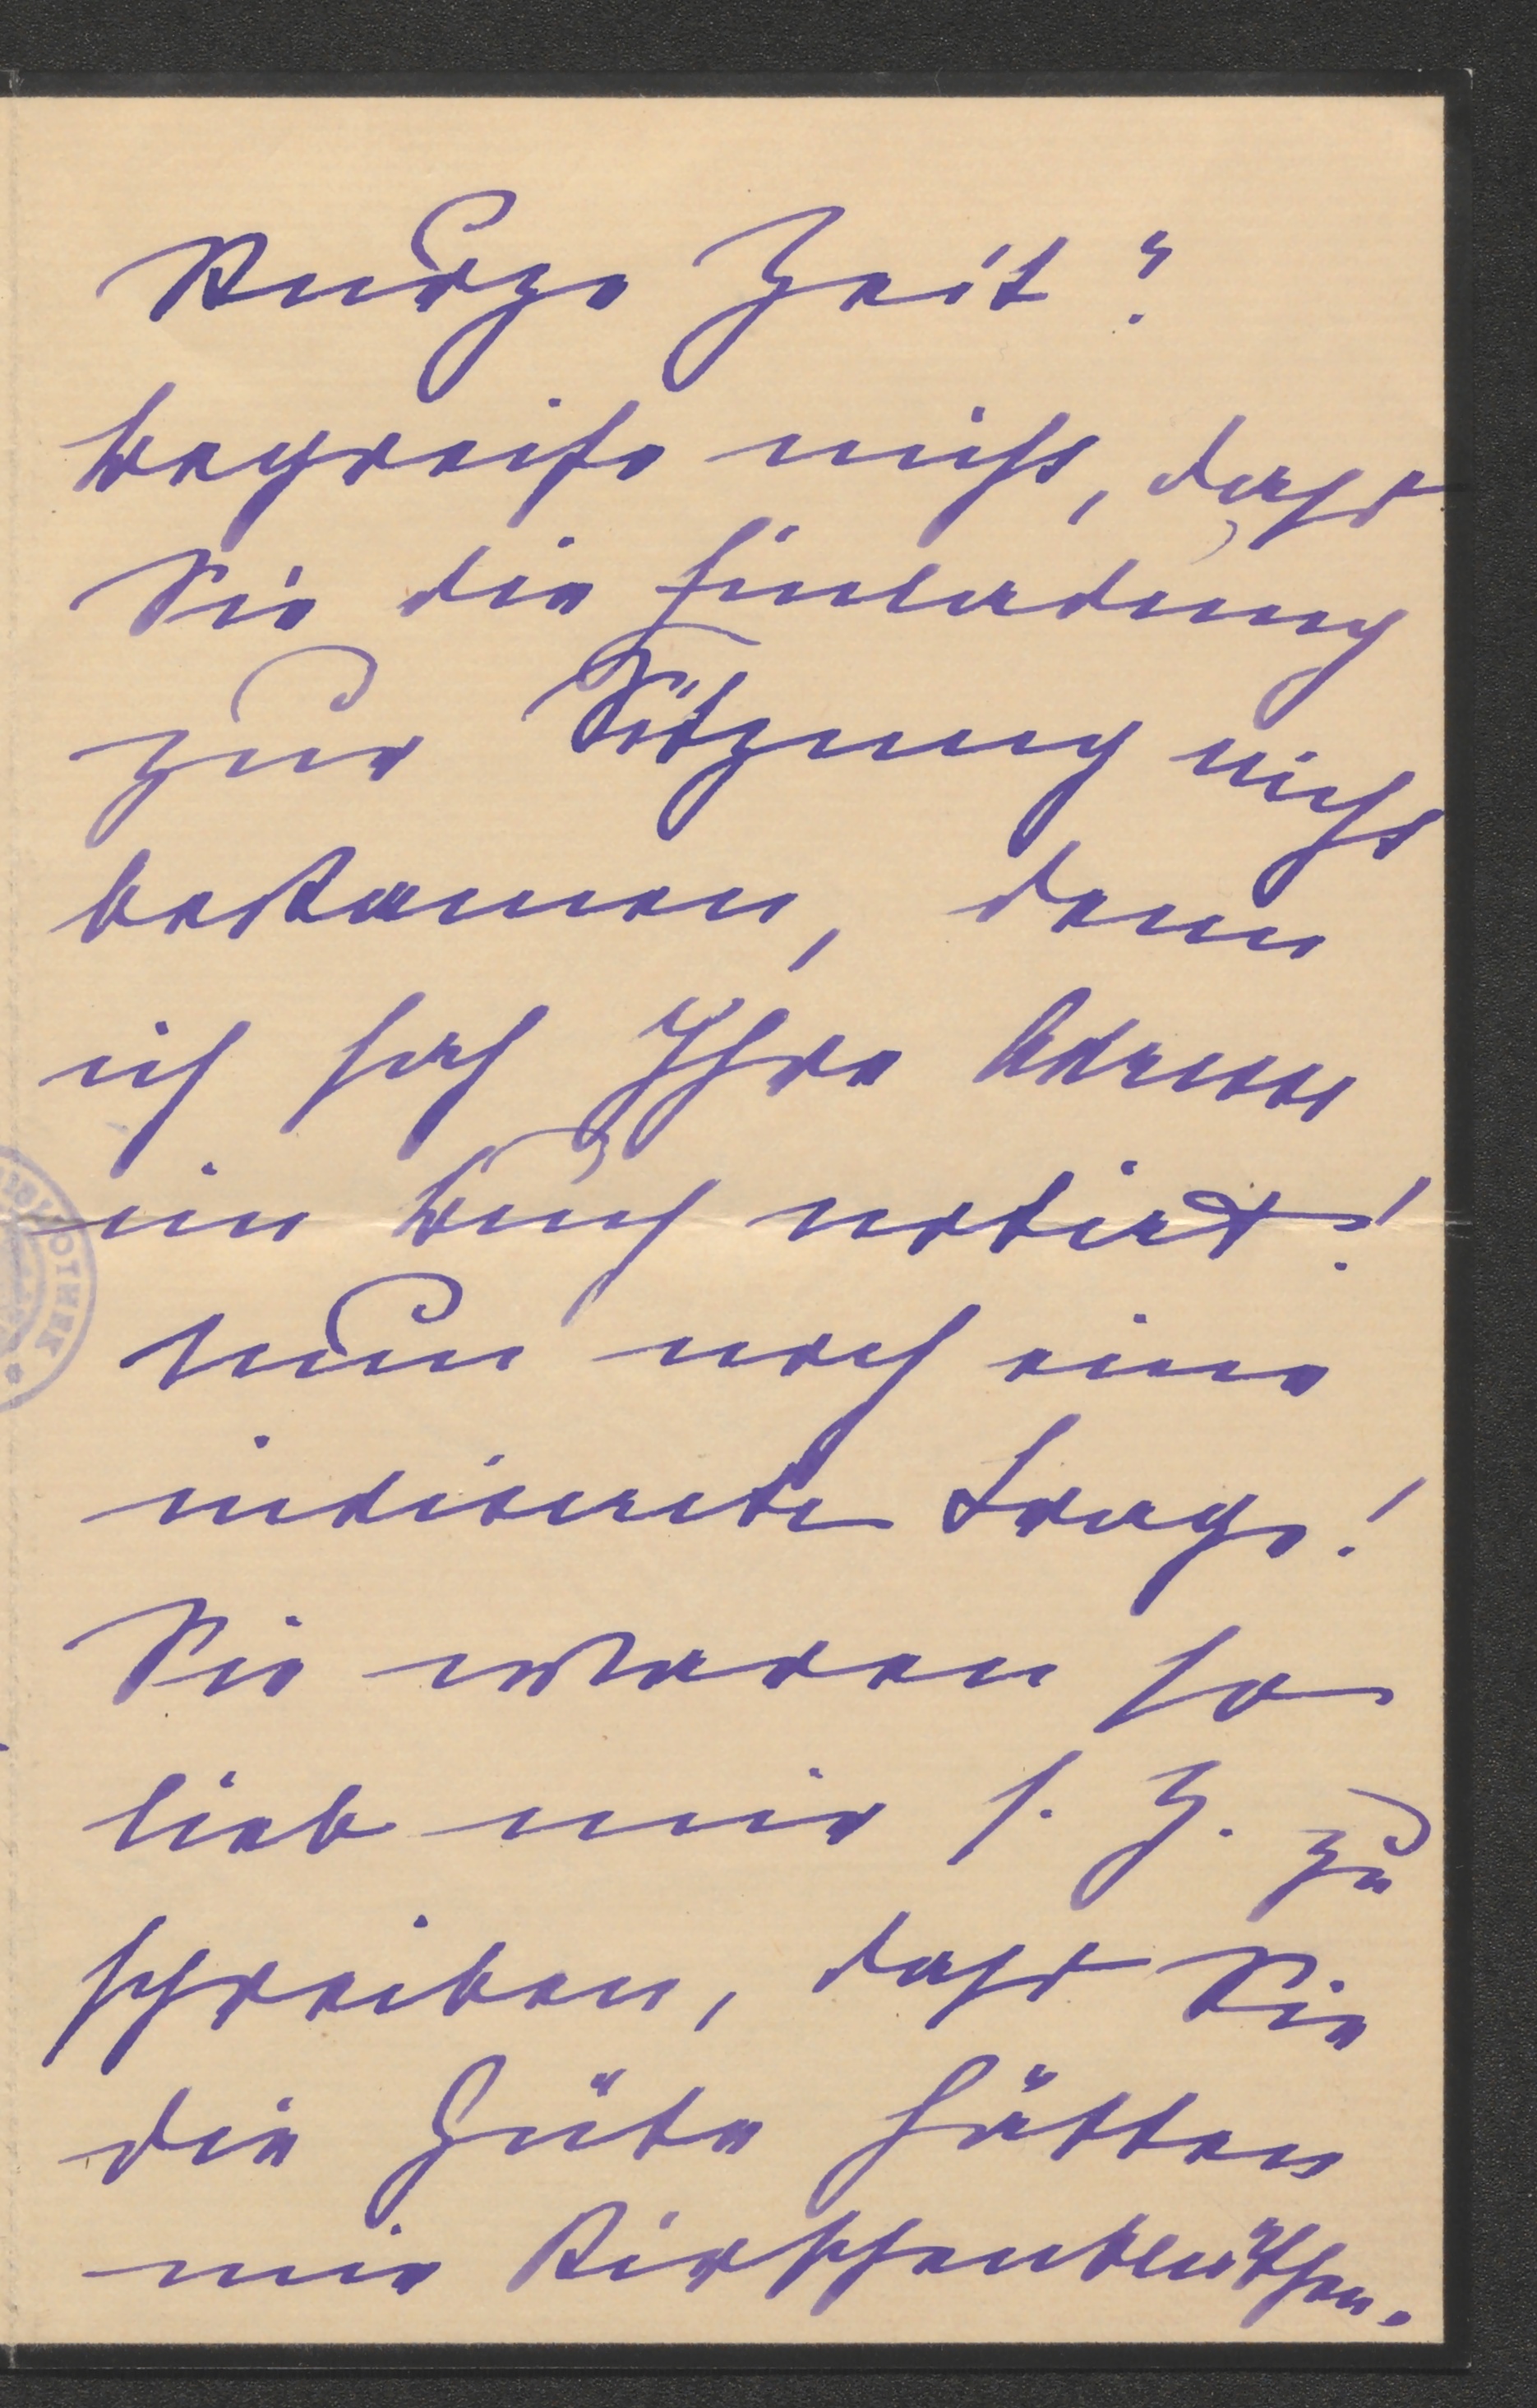 Kurze Zeit?
begreife nicht, dass
Sie die Einladung
zur Sitzung nicht
bekamen, denn
ich sah Ihre Adresse
im Buch notirt!
Nun noch eine
indiscrete Frage!
Sie waren so
lieb mir s. Z. zu
schreiben, dass Sie
die Güte hätten
mir Kirschenblüthen.